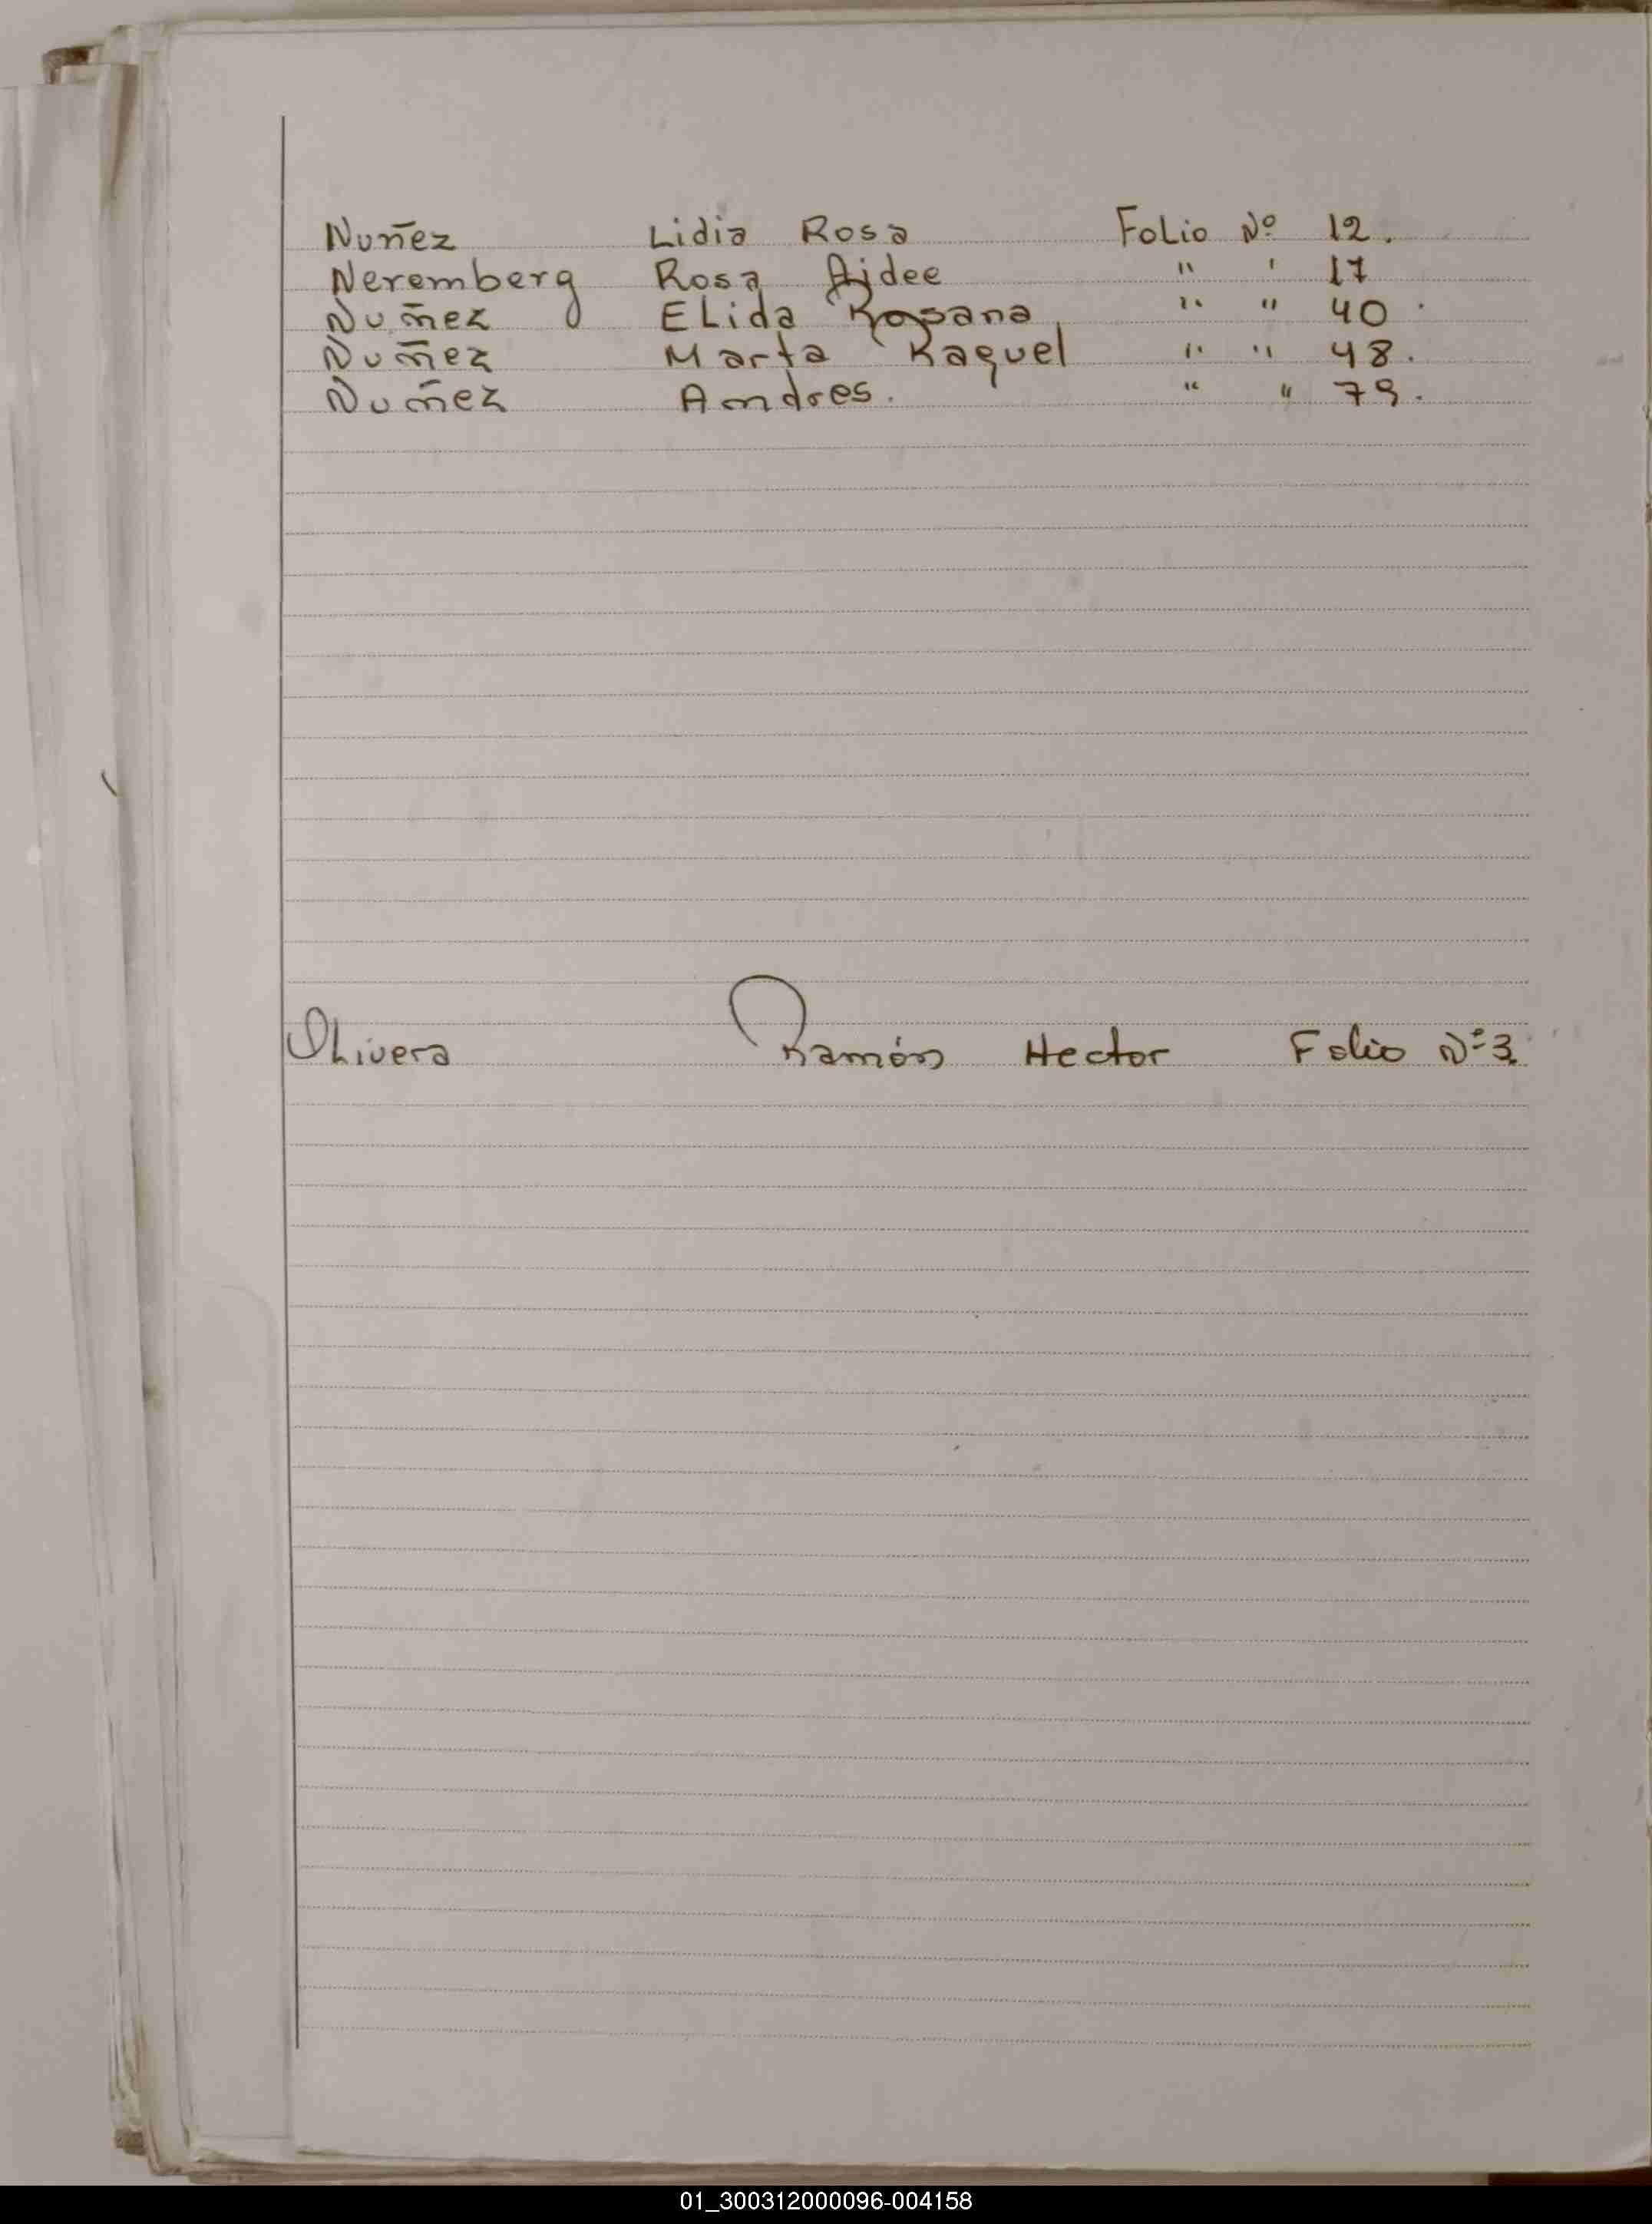 Nuñez Lidia Rosa Folio Nº 12.
Neremberg Rosa Aidee " ' 17
Nuñez Elida Rosana " " 40.
Nuñez Marta Raquel " " 48.
Nuñez Andres. " " 79.
Olivera Ramón Hector Folio Nº 3
01_300312000096-004158